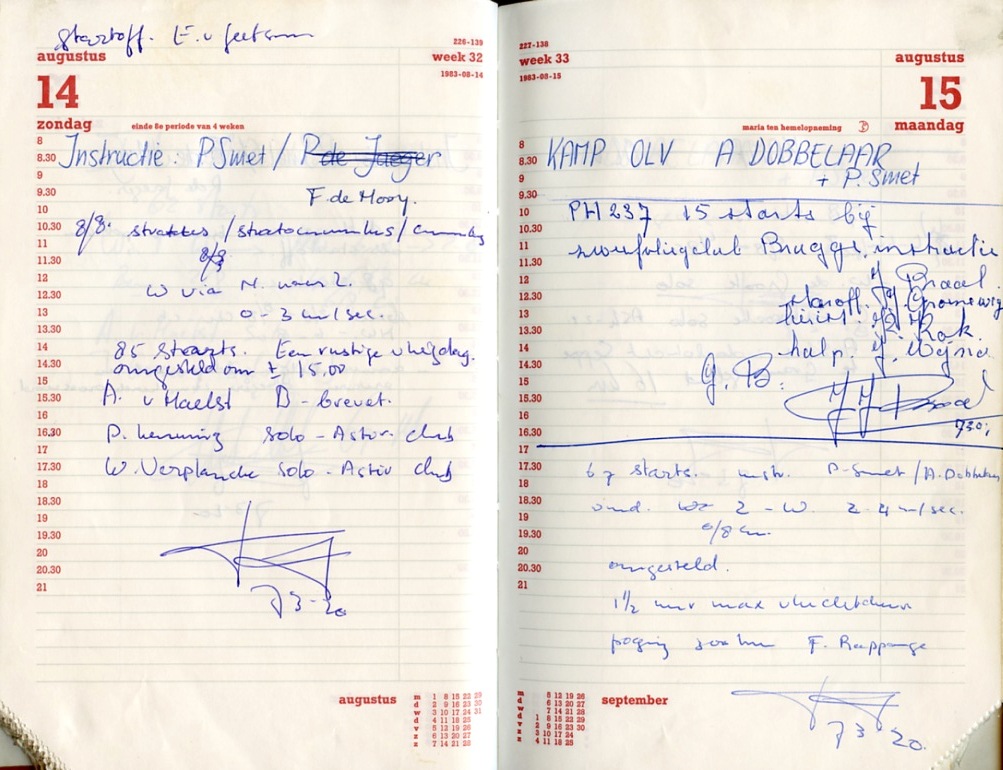 Startoff. E. v
augustus
226-139
week 32
14
1983-08-14
zondag
einde 8e periode van 4 weken
8
8.30
9
9.30
10
10.30
11
11.30
12
12.30
13
13.30
14
14.30
15
15.30
16
16.30
17
17.30
18
18.30
19
19.30
20
20.30
21
Instructie: P Smet / P de Jaeger
F. de Mooy.
8/8. stratus / stratocumulus /
8/8
W via N. naar Z.
0 - 3 m/sec.
85 starts. Een rustige vliegdag.
omgesteld om ± 15.00
A. v Haelst B - brevet.
P. Henning solo - Astir. club
W. Verplancke solo - Astir club
augustus
m 1 8 15 22 29
d 2 9 16 23 30
w 3 10 17 24 31
d 4 11 18 25
v 5 12 19 26
z 6 13 20 27
z 7 14 21 28
227-138
week 33
augustus
1983-08-15
15
maria ten hemelopneming
maandag
8
8.30
9
9.30
10
10.30
11
11.30
12
12.30
13
13.30
14
14.30
15
15.30
16
16.30
17
17.30
18
18.30
19
19.30
20
20.30
21
KAMP OLV A DOBBELAAR
+ P. Smet
PH 237 15 starts bij
zweefvliegclub Brugge, instructie
J Praal.
staroff. J
lierist.
hulp. J.
G. B.
67 starts. instr. P. Smet / A. Dobbelaar
wind. Z - W. 2-4 m/sec.
omgesteld.
1½ uur max vlucht
poging F. Rappange
september
m 5 12 19 26
d 6 13 20 27
w 7 14 21 28
d 1 8 15 22 29
v 2 9 16 23 30
z 3 10 17 24
z 4 11 18 25